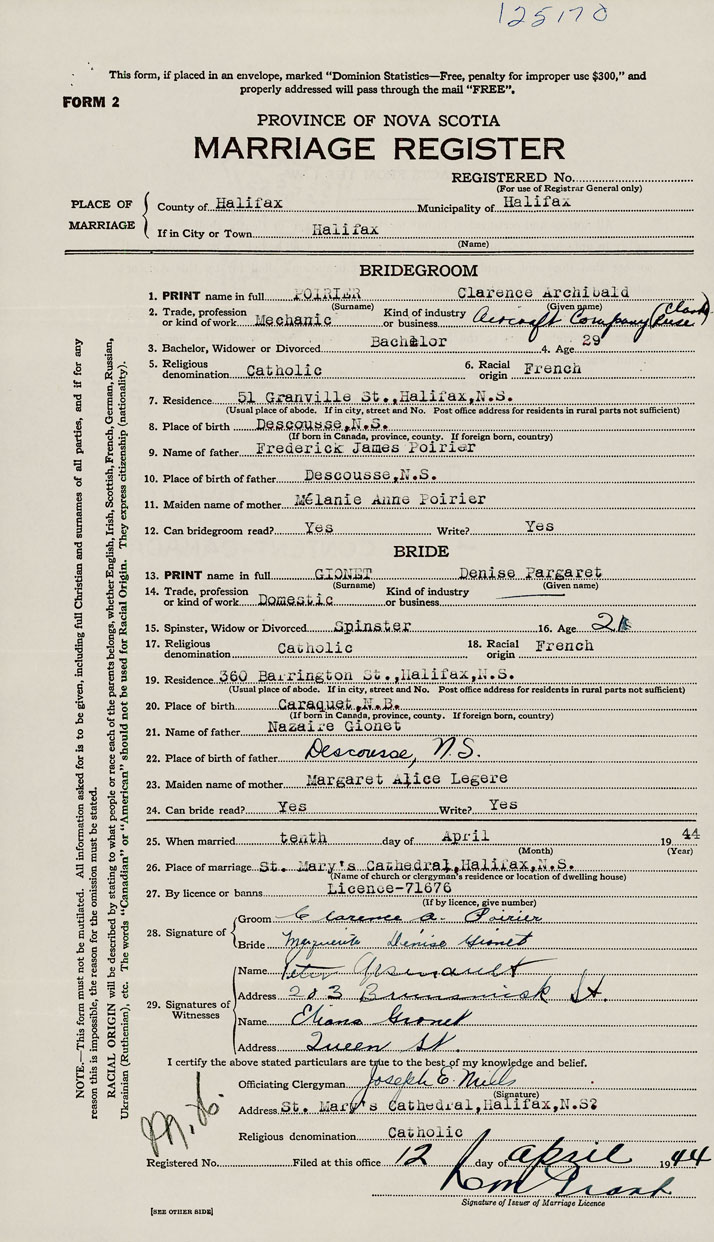 125170
This form, if placed in an envelope, marked "Dominion Statistics—Free, penalty for improper use $300," and
properly addressed will pass through the mail "FREE".
FORM 2
PROVINCE OF NOVA SCOTIA
MARRIAGE REGISTER
REGISTERED No.
(For use of Registrar General only)
PLACE OF MARRIAGE
County of Halifax Municipality of Halifax
If in City or Town Halifax
(Name)
BRIDEGROOM
1. PRINT name in full POIRIER Clarence Archibald
(Surname) (Given name)
2. Trade, profession or kind of work Mechanic Kind of industry or business Aircraft Company (Clark Ruse)
3. Bachelor, Widower or Divorced Bachelor 4. Age 29
5. Religious denomination Catholic 6. Racial origin French
7. Residence 51 Granville St., Halifax, N.S.
(Usual place of abode. If in city, street and No. Post office address for residents in rural parts not sufficient)
8. Place of birth Descousse, N.S.
(If born in Canada, province, county. If foreign born, country)
9. Name of father Frederick James Poirier
10. Place of birth of father Descousse, N.S.
11. Maiden name of mother Mélanie Anne Poirier
12. Can bridegroom read? Yes Write? Yes
BRIDE
13. PRINT name in full GIONET Denise Pargaret
(Surname) (Given name)
14. Trade, profession or kind of work Domestic Kind of industry or business
15. Spinster, Widow or Divorced Spinster 16. Age 21
17. Religious denomination Catholic 18. Racial origin French
19. Residence 360 Barrington St., Halifax, N.S.
(Usual place of abode. If in city, street and No. Post office address for residents in rural parts not sufficient)
20. Place of birth Caraquet, N.B.
(If born in Canada, province, county. If foreign born, country)
21. Name of father Nazaire Gionet
22. Place of birth of father Descousse, N.S.
23. Maiden name of mother Margaret Alice Legere
24. Can bride read? Yes Write? Yes
25. When married tenth day of April 1944
(Month) (Year)
26. Place of marriage St. Mary's Cathedral, Halifax, N.S.
(Name of church or clergyman's residence or location of dwelling house)
27. By licence or banns Licence-71676
(If by licence, give number)
28. Signature of
Groom Clarence A. Poirier
Bride Marguerite Denise Gionet
29. Signatures of Witnesses
Name Peter Arsenault
Address 203 Brunswick St.
Name Eliane Gionet
Address Queen St.
I certify the above stated particulars are true to the best of my knowledge and belief.
Officiating Clergyman Joseph E. Mills
(Signature)
Address St. Mary's Cathedral, Halifax, N.S?
Religious denomination Catholic
Registered No. Filed at this office 12 day of April 1944
Signature of Issuer of Marriage Licence
[SEE OTHER SIDE]
NOTE.—This form must not be mutilated. All information asked for is to be given, including full Christian and surnames of all parties, and if for any
reason this is impossible, the reason for the omission must be stated.
RACIAL ORIGIN will be described by stating to what people or race each of the parents belongs, whether English, Irish, Scottish, French, German, Russian,
Ukrainian (Ruthenian), etc. The words "Canadian" or "American" should not be used for Racial Origin. They express citizenship (nationality).